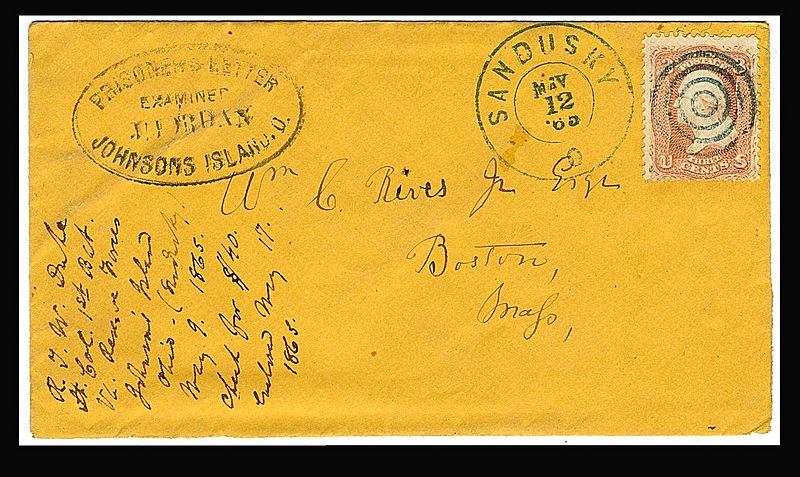 PRISONER'S LETTER
EXAMINED
JOHNSONS ISLAND. O.
SANDUSKY
MAY
12
'65
O
U 3 S
CENTS
Wm C. Rives Jr Esqr
Boston,
Mass,
R. T. W. Duke
Lt. Col. 1st Bat.
Va. Reserve Forces
Johnson's Island
Ohio - (Sandusky)
May 9. 1865.
Check for $40.
Enclosed May 17.
1865.